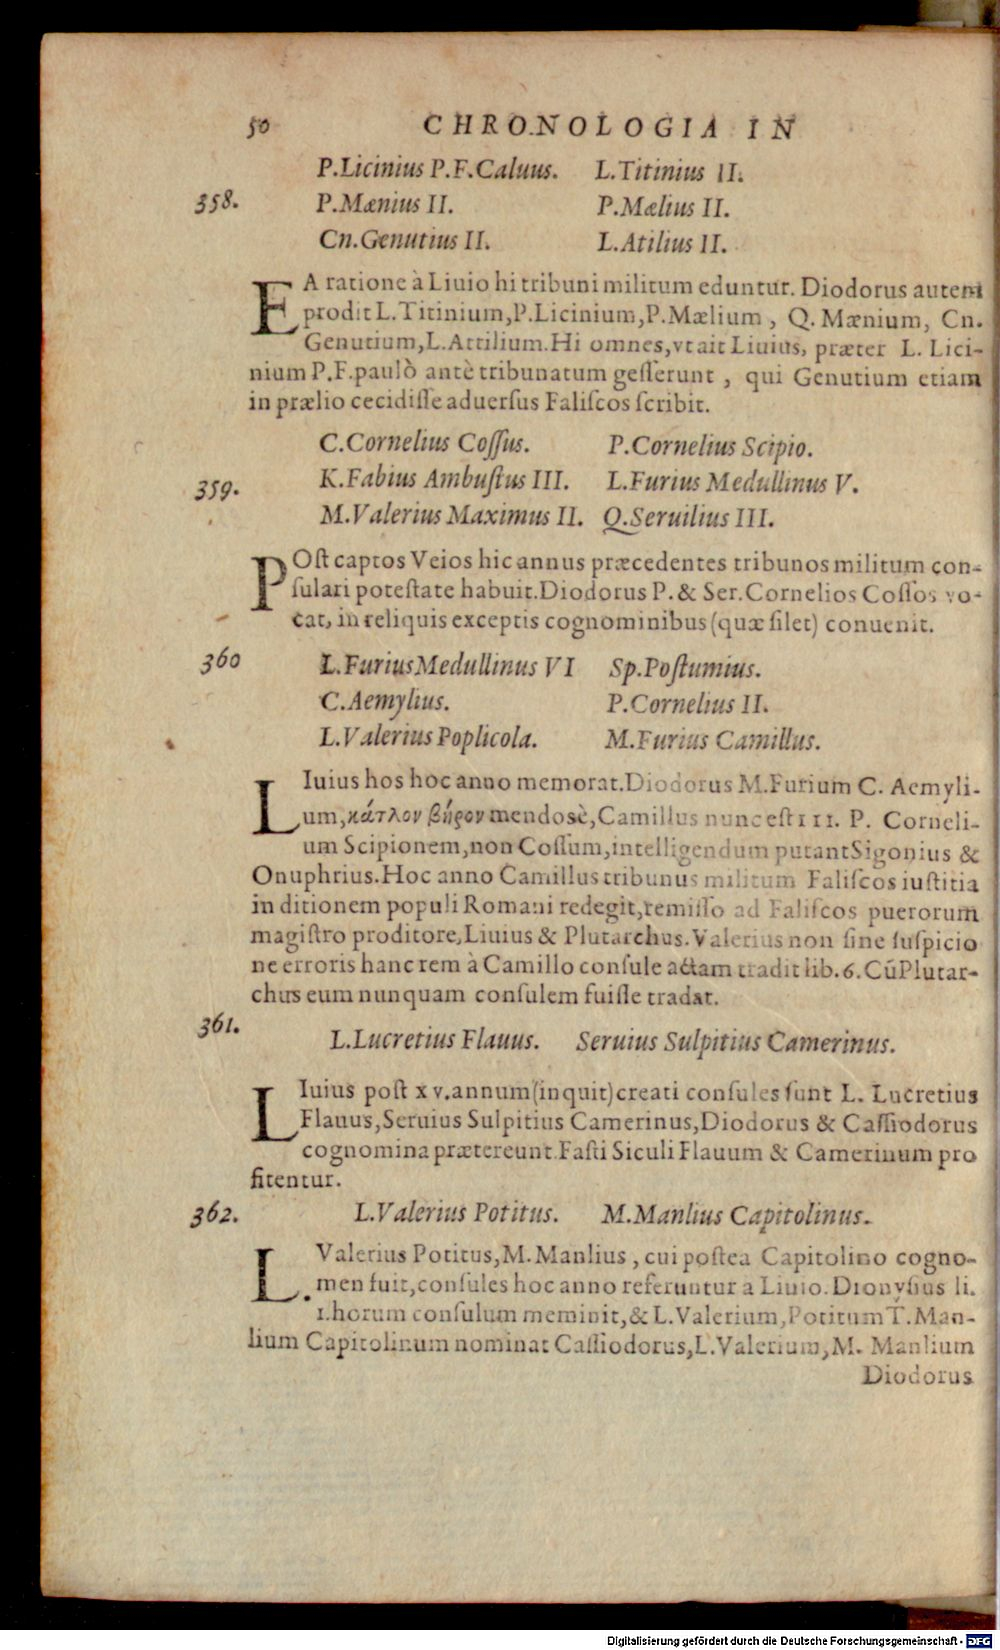 50 CHRONOLOGIA IN
P.Licinius P.F.Caluus. L.Titinius II.
358. P.Mænius II. P.Mælius II.
Cn.Genutius II. L.Atilius II.
EA ratione à Liuio hi tribuni militum eduntur. Diodorus autem
prodit L.Titinium,P.Licinium,P.Mælium, Q. Mænium, Cn.
Genutium,L.Attilium.Hi omnes,vt ait Liuius, præter L. Lici-
nium P.F.paulò antè tribunatum gesserunt, qui Genutium etiam
in prælio cecidisse aduersus Faliscos scribit.
C.Cornelius Cossus. P.Cornelius Scipio.
359. K.Fabius Ambustus III. L.Furius Medullinus V.
M.Valerius Maximus II. Q.Seruilius III.
POst captos Veios hic annus præcedentes tribunos militum con-
sulari potestate habuit.Diodorus P. & Ser.Cornelios Cossos vo-
cat, in reliquis exceptis cognominibus (quæ silet) conuenit.
360 L.Furius Medullinus VI Sp.Postumius.
C.Aemylius. P.Cornelius II.
L.Valerius Poplicola. M.Furius Camillus.
LIuius hos hoc anno memorat.Diodorus M.Furium C. Aemyli-
um,κάτλον βῆρον mendosè,Camillus nunc est III. P. Corneli-
um Scipionem,non Cossum,intelligendum putant Sigonius &
Onuphrius.Hoc anno Camillus tribunus militum Faliscos iustitia
in ditionem populi Romani redegit,remisso ad Faliscos puerorum
magistro proditore,Liuius & Plutarchus.Valerius non sine suspicio
ne erroris hanc rem à Camillo consule actam tradit lib.6.Cū Plutar-
chus eum nunquam consulem fuisse tradat.
361. L.Lucretius Flauus. Seruius Sulpitius Camerinus.
LIuius post xv.annum(inquit)creati consules sunt L. Lucretius
Flauus,Seruius Sulpitius Camerinus,Diodorus & Cassiodorus
cognomina prætereunt.Fasti Siculi Flauum & Camerinum pro
fitentur.
362. L.Valerius Potitus. M.Manlius Capitolinus.
L. Valerius Potitus,M.Manlius, cui postea Capitolino cogno-
men fuit,consules hoc anno referuntur a Liuio.Dionysius li.
1.horum consulum meminit,& L.Valerium,Potitum T.Man-
lium Capitolinum nominat Cassiodorus,L.Valerium,M. Manlium
Diodorus
Digitalisierung gefördert durch die Deutsche Forschungsgemeinschaft - DFG